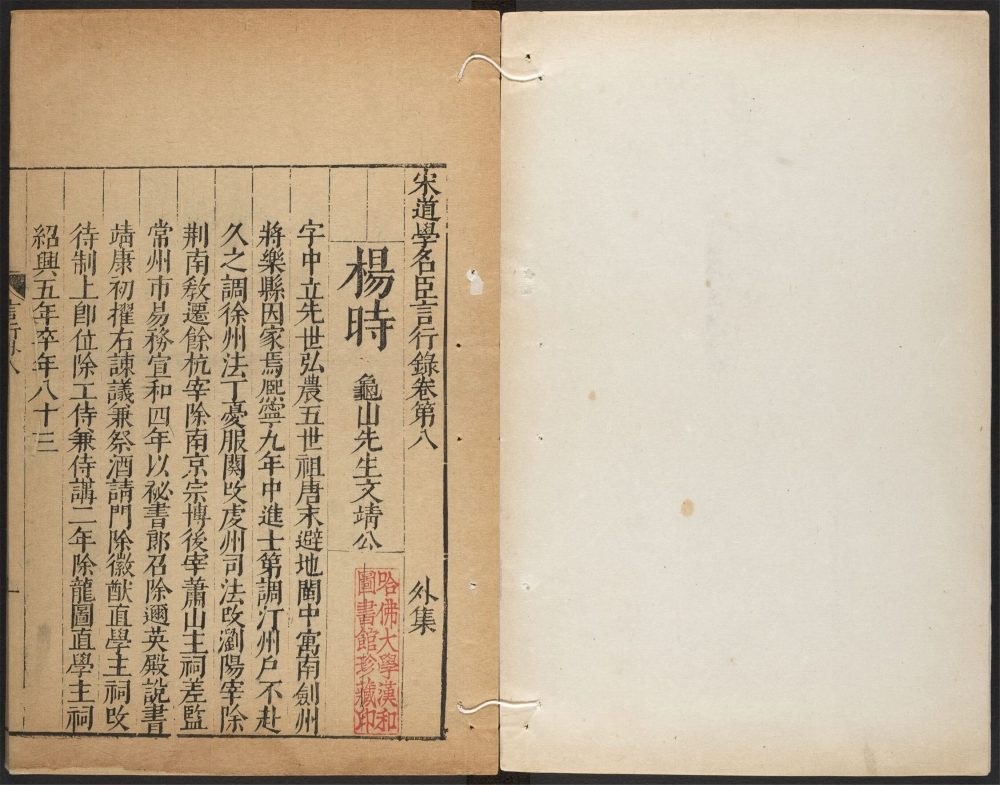 宋道學名臣言行錄卷第八　外集
楊時　龜山先生文靖公
哈佛大學漢和
圖書館珍藏印
字中立先世弘農五世祖唐末避地閩中寓南劍州
將樂縣因家焉熈寧九年中進士第調汀州戶不赴
久之調徐州法丁憂服闋改虔州司法改瀏陽宰除
荆南敎遷餘杭宰除南京宗博後宰蕭山主祠差監
常州市易務宣和四年以祕書郎召除邇英殿說書
靖康初擢右諫議兼祭酒請門除徽猷直學主祠改
待制上卽位除工侍兼侍講二年除龍圖直學主祠
紹興五年卒年八十三